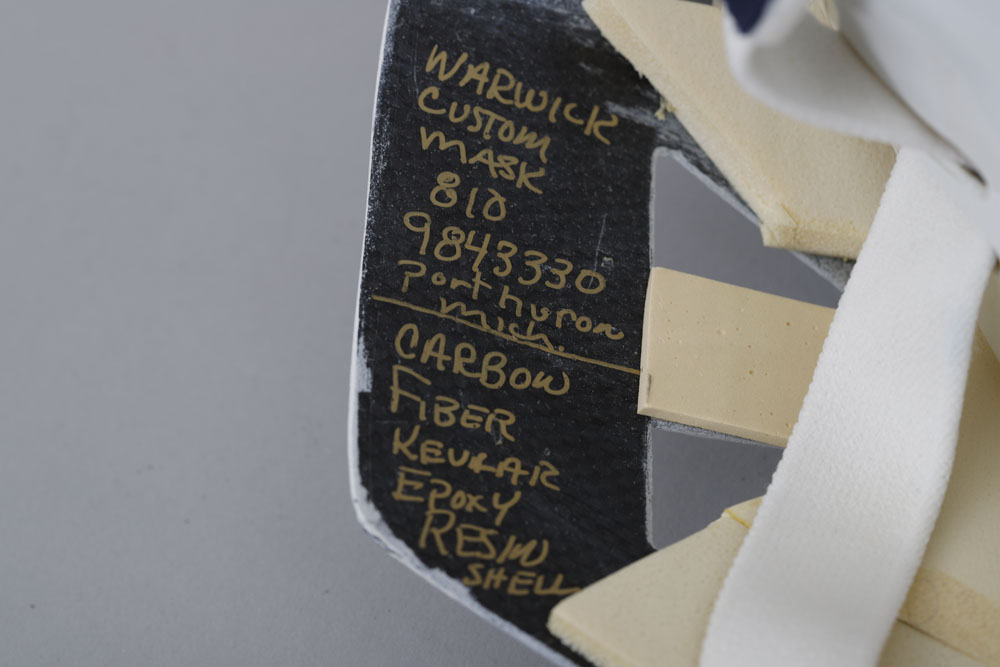 WARWICK
CUSTOM
MASK
810
9843330
Port huron
Mich.
CARBON
FIBER
KEVLAR
EPOXY
RESIN
SHELL